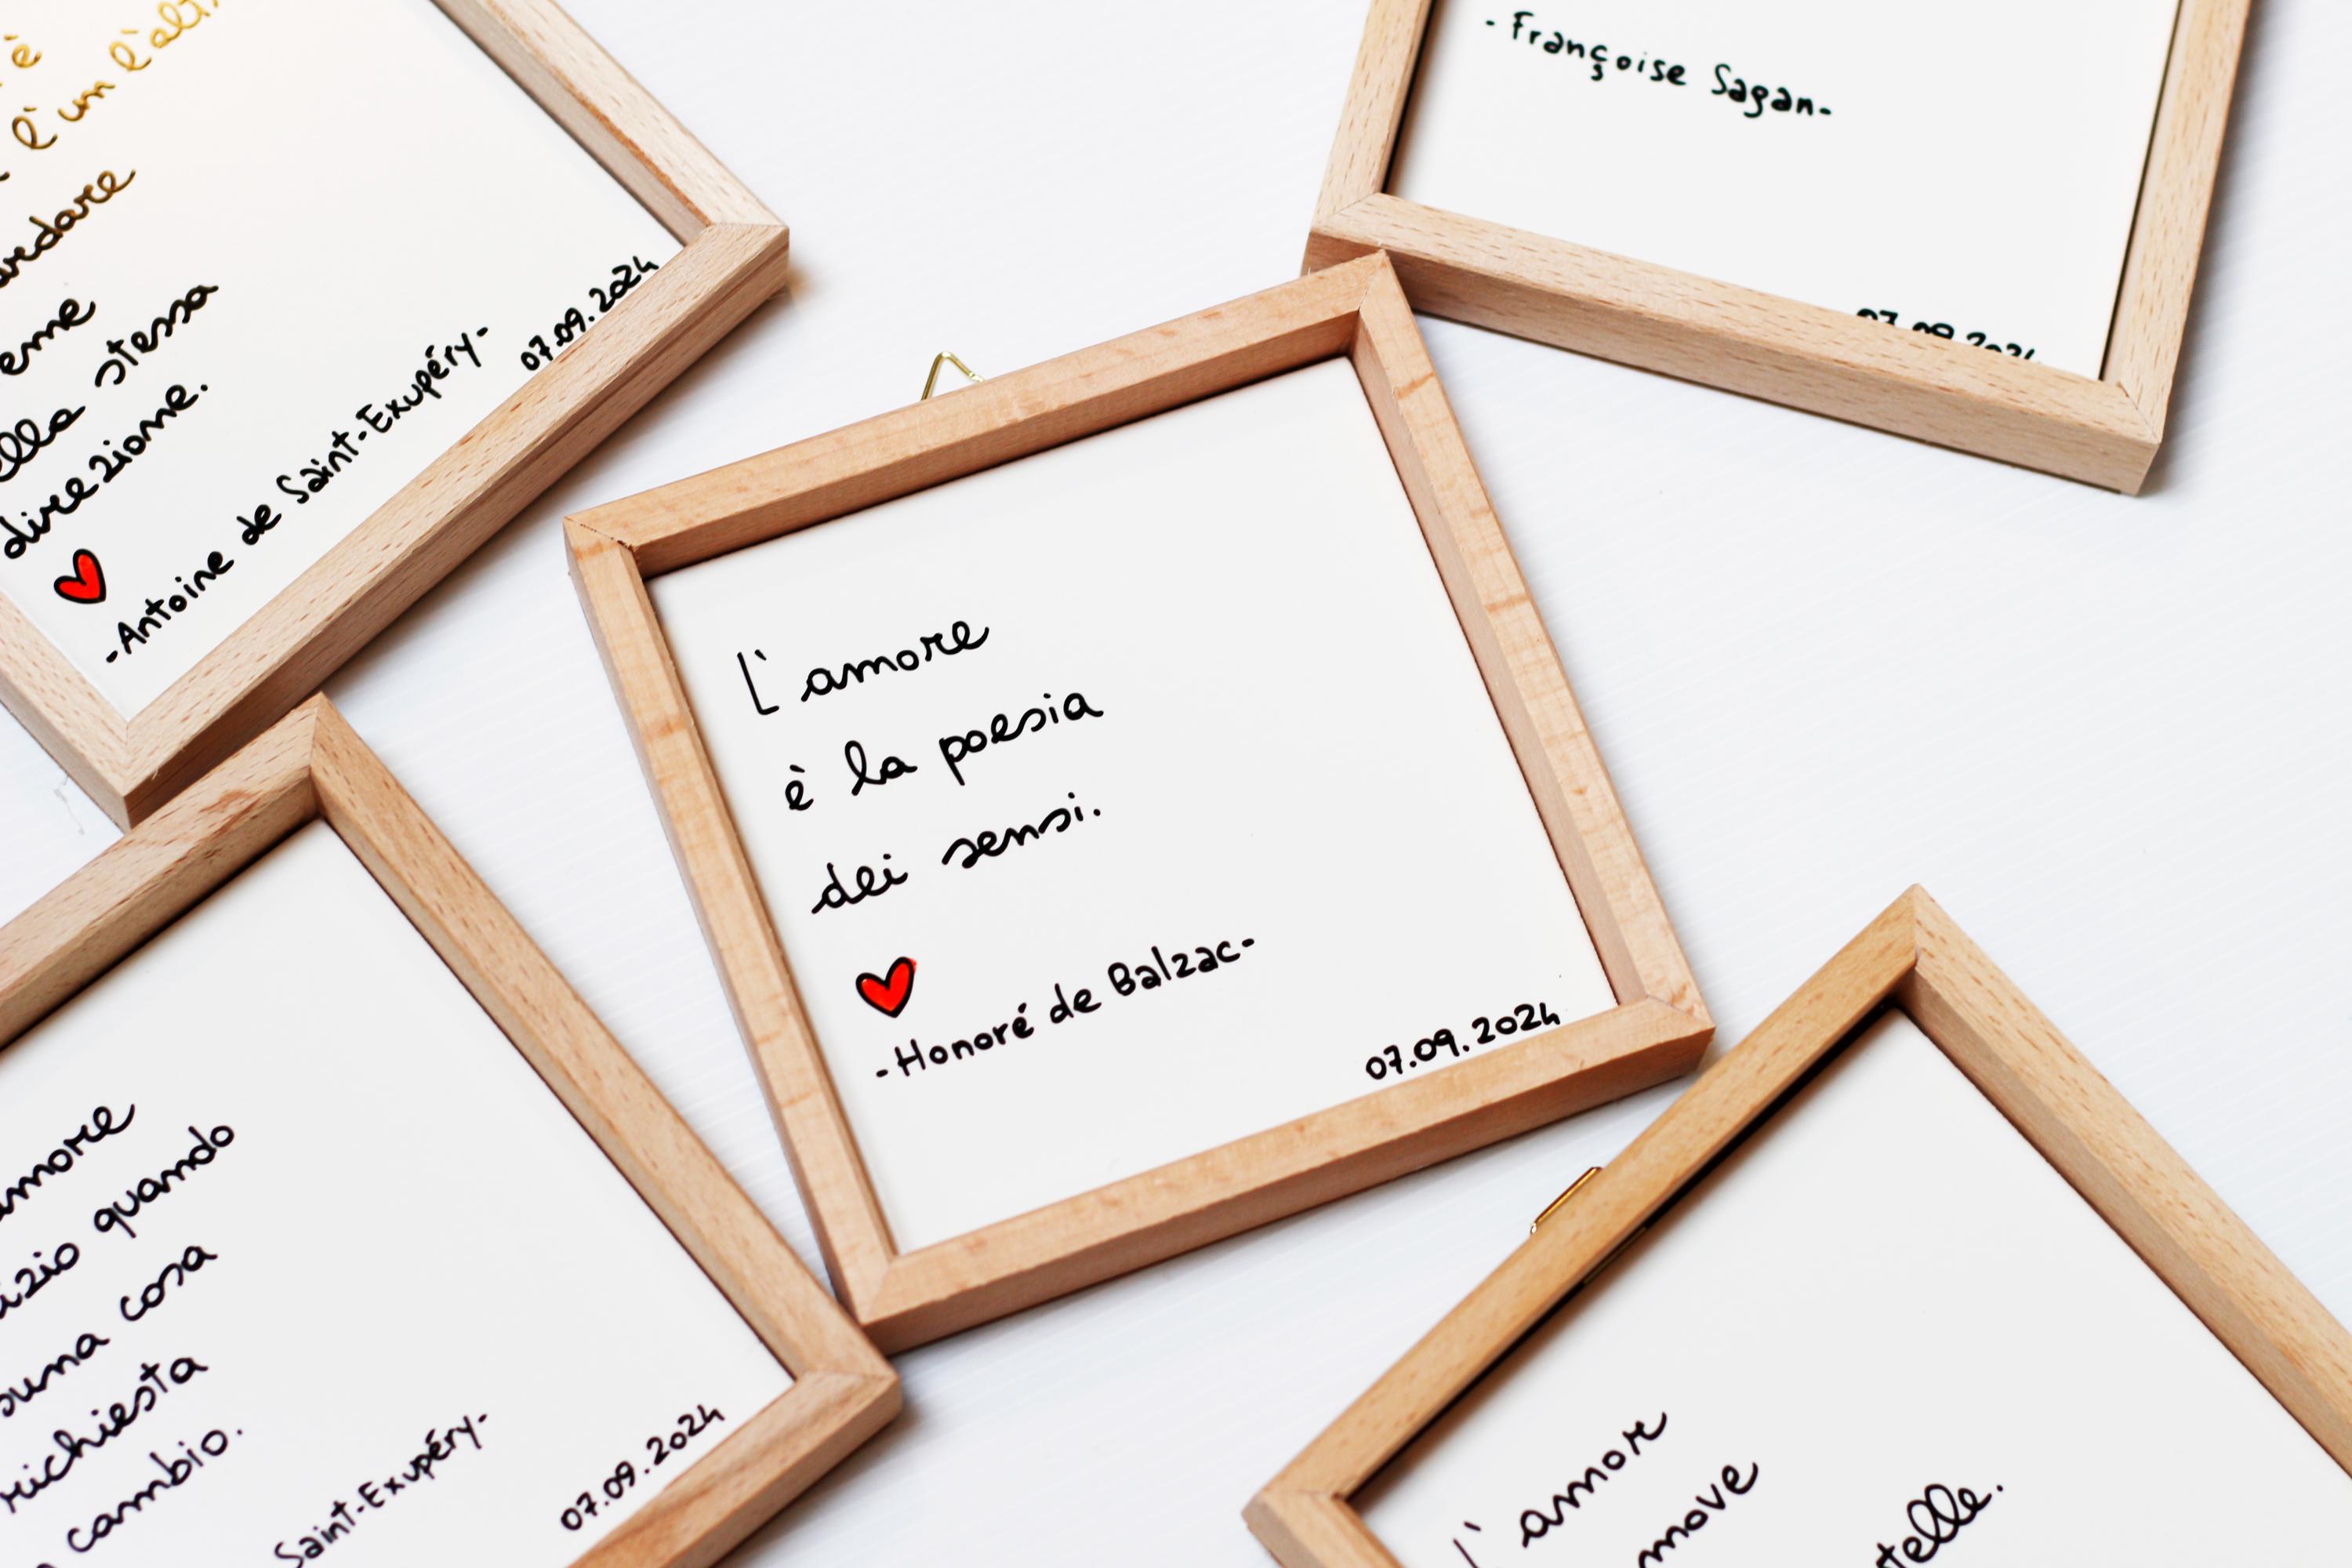 è
l'un l'altro
eme
ella stessa
direzione.
-Antoine de Saint-Exupéry-
07.09.2024
-Françoise Sagan-
07.09.2024
L'amore
è la poesia
dei sensi.
-Honoré de Balzac-
07.09.2024
amore
izio quando
cosa
richiesta
cambio.
Saint-Exupéry-
07.09.2024
L'amor
move
stelle.